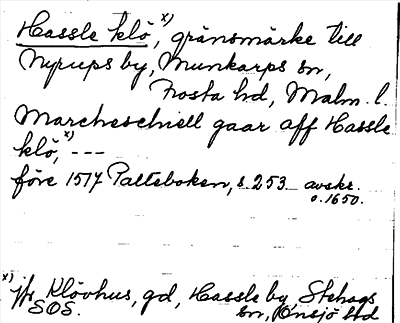 Hassle klö,ˣ⁾ gränsmärke till
Nyrups by, Munkarps sn,
Frosta hd, Malm. l.
Marcheschiell gaar aff Hassle
klö,ˣ⁾ ---
före 1517 Palteboken, s. 253 avskr.
o. 1650.
x) jfr Klövhus, gd, Hassle by, Stehags
SOS. sn, Onsjö hd